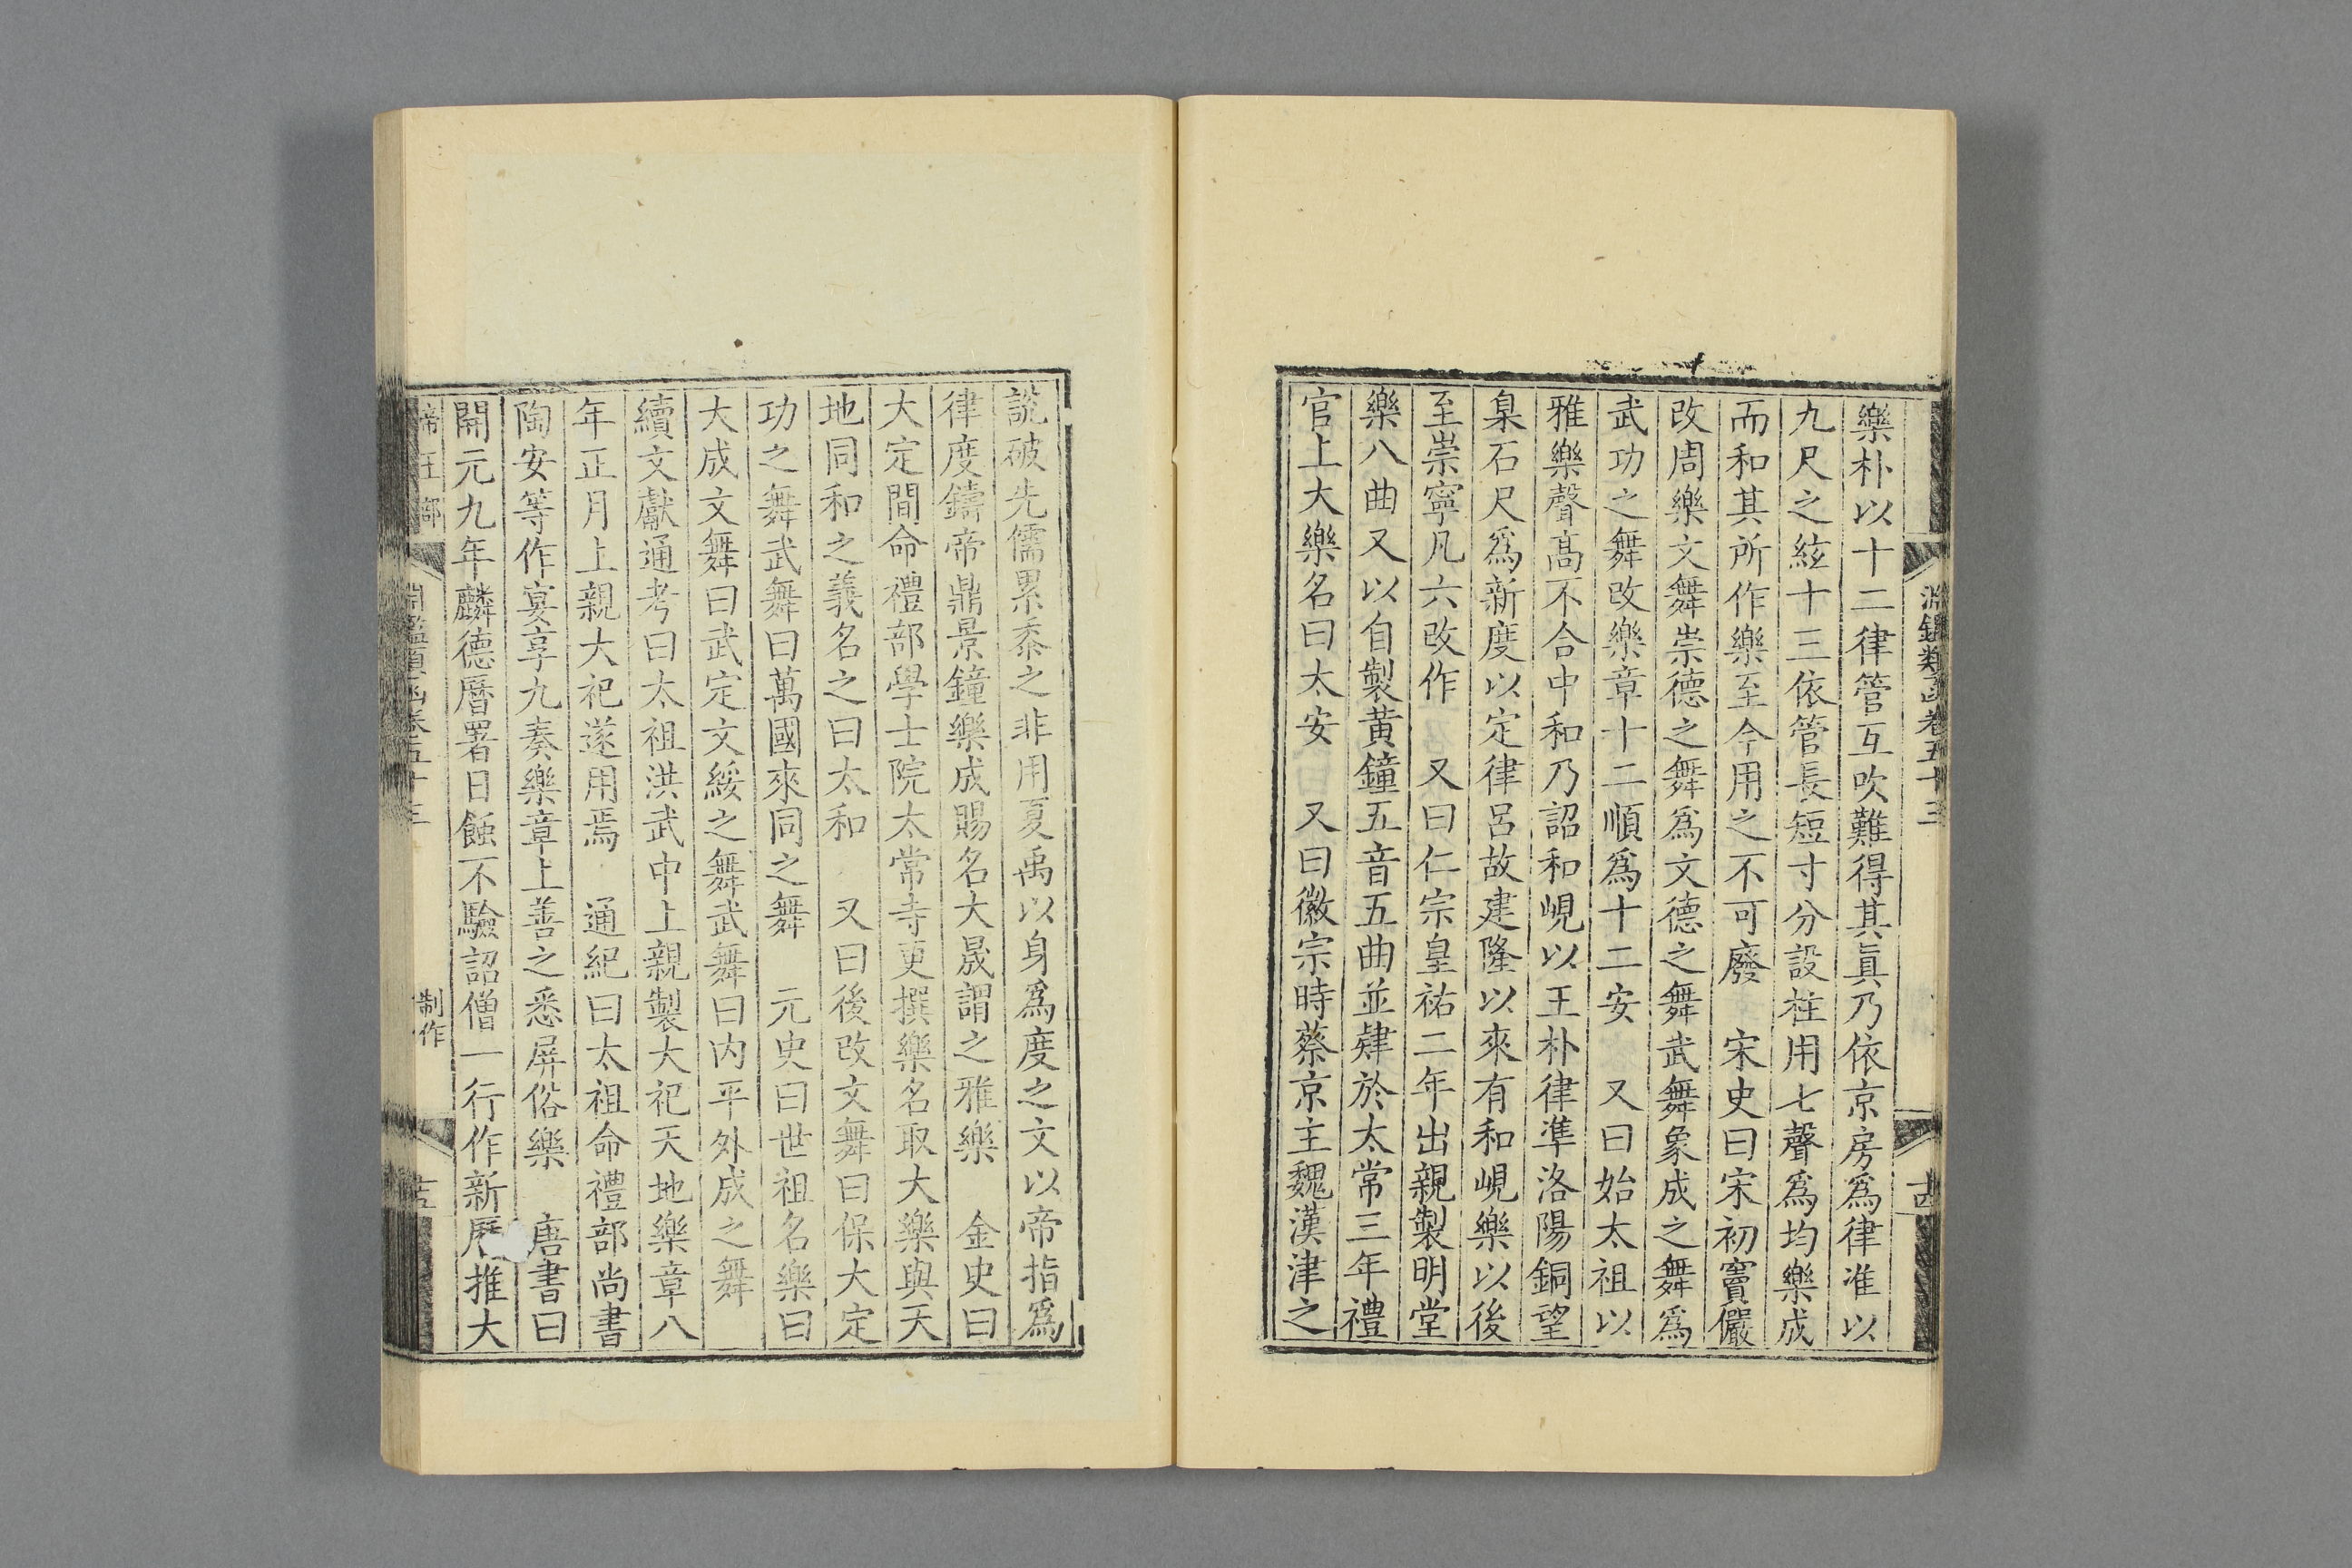 淵鑑類函卷五十三
樂朴以十二律管互吹難得其眞乃依京房爲律准以
九尺之絃十三依管長短寸分設柱用七聲爲均樂成
而和其所作樂至今用之不可廢　宋史曰宋初竇儼
改周樂文舞崇德之舞爲文德之舞武舞象成之舞爲
武功之舞改樂章十二順爲十二安　又曰始太祖以
雅樂聲高不合中和乃詔和峴以王朴律準洛陽銅望
臬石尺爲新度以定律呂故建隆以來有和峴樂以後
至崇寧凡六改作　又曰仁宗皇祐二年出親製明堂
樂八曲又以自製黃鐘五音五曲並肄於太常三年禮
官上大樂名曰太安　又曰徽宗時蔡京主魏漢津之
說破先儒累黍之非用夏禹以身爲度之文以帝指爲
律度鑄帝鼎景鐘樂成賜名大晟謂之雅樂　金史曰
大定間命禮部學士院太常寺更撰樂名取大樂與天
地同和之義名之曰太和　又曰後改文舞曰保大定
功之舞武舞曰萬國來同之舞　元史曰世祖名樂曰
大成文舞曰武定文綏之舞武舞曰內平外成之舞
續文獻通考曰太祖洪武中上親製大祀天地樂章八
年正月上親大祀遂用焉　通紀曰太祖命禮部尚書
陶安等作宴享九奏樂章上善之悉屏俗樂　唐書曰
開元九年麟德曆署日蝕不驗詔僧一行作新曆推大
帝王部
淵鑑類函卷五十三
制作